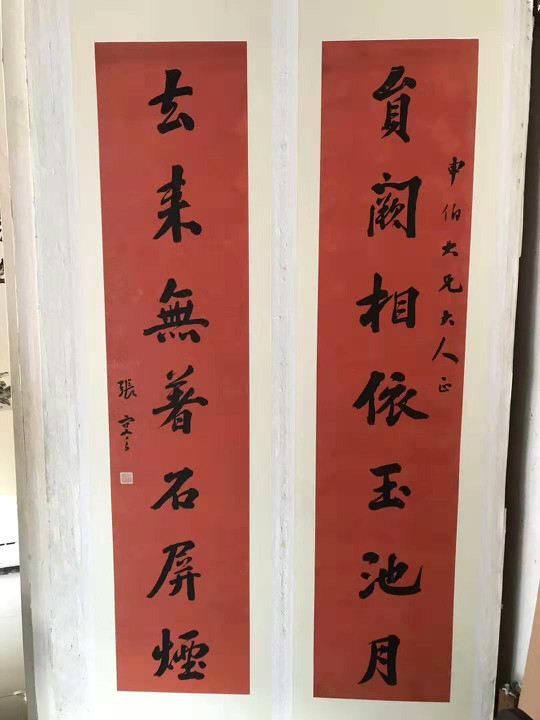 申伯大兄大人正
員闕相依玉池月
去来無著石屏煙
張謇